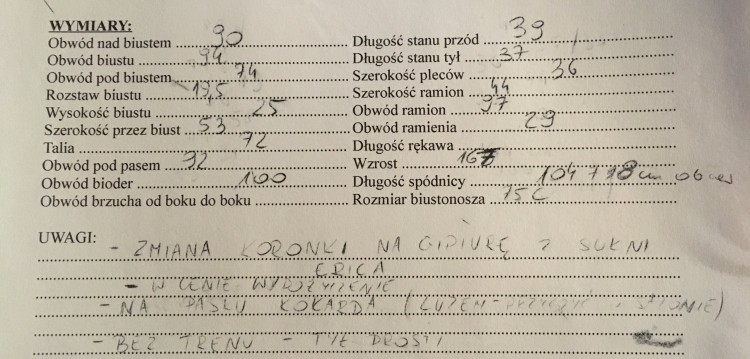 WYMIARY:
Obwód nad biustem 90 Długość stanu przód 39
Obwód biustu 94 Długość stanu tył 37
Obwód pod biustem 74 Szerokość pleców 36
Rozstaw biustu 17,5 Szerokość ramion 44
Wysokość biustu 25 Obwód ramion 97
Szerokość przez biust 53 Obwód ramienia 29
Talia 72 Długość rękawa
Obwód pod pasem 92 Wzrost 167
Obwód bioder 100 Długość spódnicy 104 + 8 cm obcas
Obwód brzucha od boku do boku Rozmiar biustonosza 75C
UWAGI:
- ZMIANA KORONKI NA GIPIURĘ Z SUKNI
ERICA
- W CENIE WYPOŻYCZENIE
- NA PASKU KOKARDA (LUZEM - W SALONIE)
- BEZ TRENU - TYŁ PROSTY